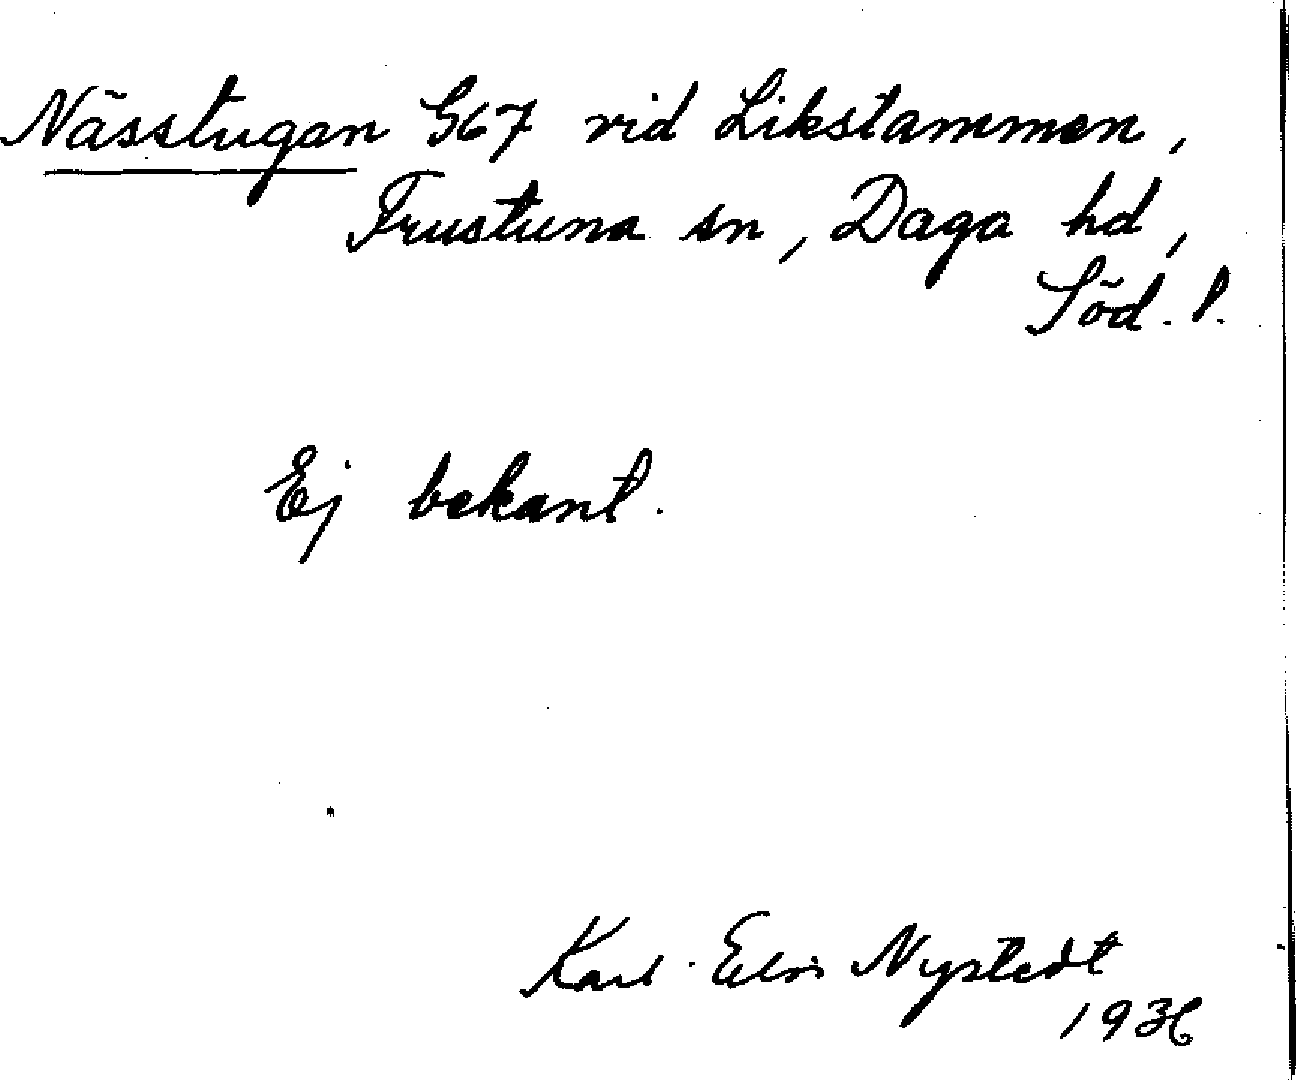 Nässtugan G67 vid Likstammen,
Frustuna sn, Daga hd,
Söd. l.
Ej bekant.
Karl-Elvi Nystedt
1936